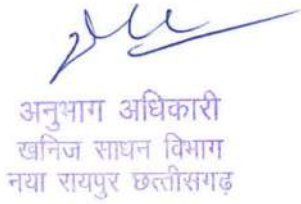 अनुभाग अधिकारी
खनिज साधन विभाग
नया रायपुर छत्तीसगढ़